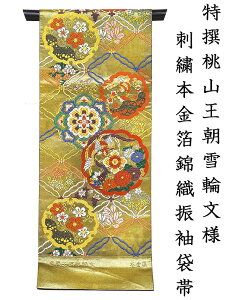 特撰桃山王朝雪輪文様
刺繍本金箔錦織振袖袋帯